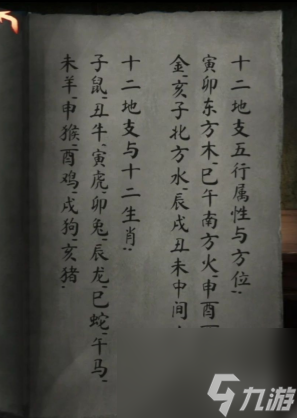 十二地支五行属性与方位:
寅卯东方木、巳午南方火、申酉
金、亥子北方水、辰戌丑未中间
十二地支与十二生肖:
子鼠、丑牛、寅虎、卯兔、辰龙、巳蛇、午马、
未羊、申猴、酉鸡、戌狗、亥猪.
九游